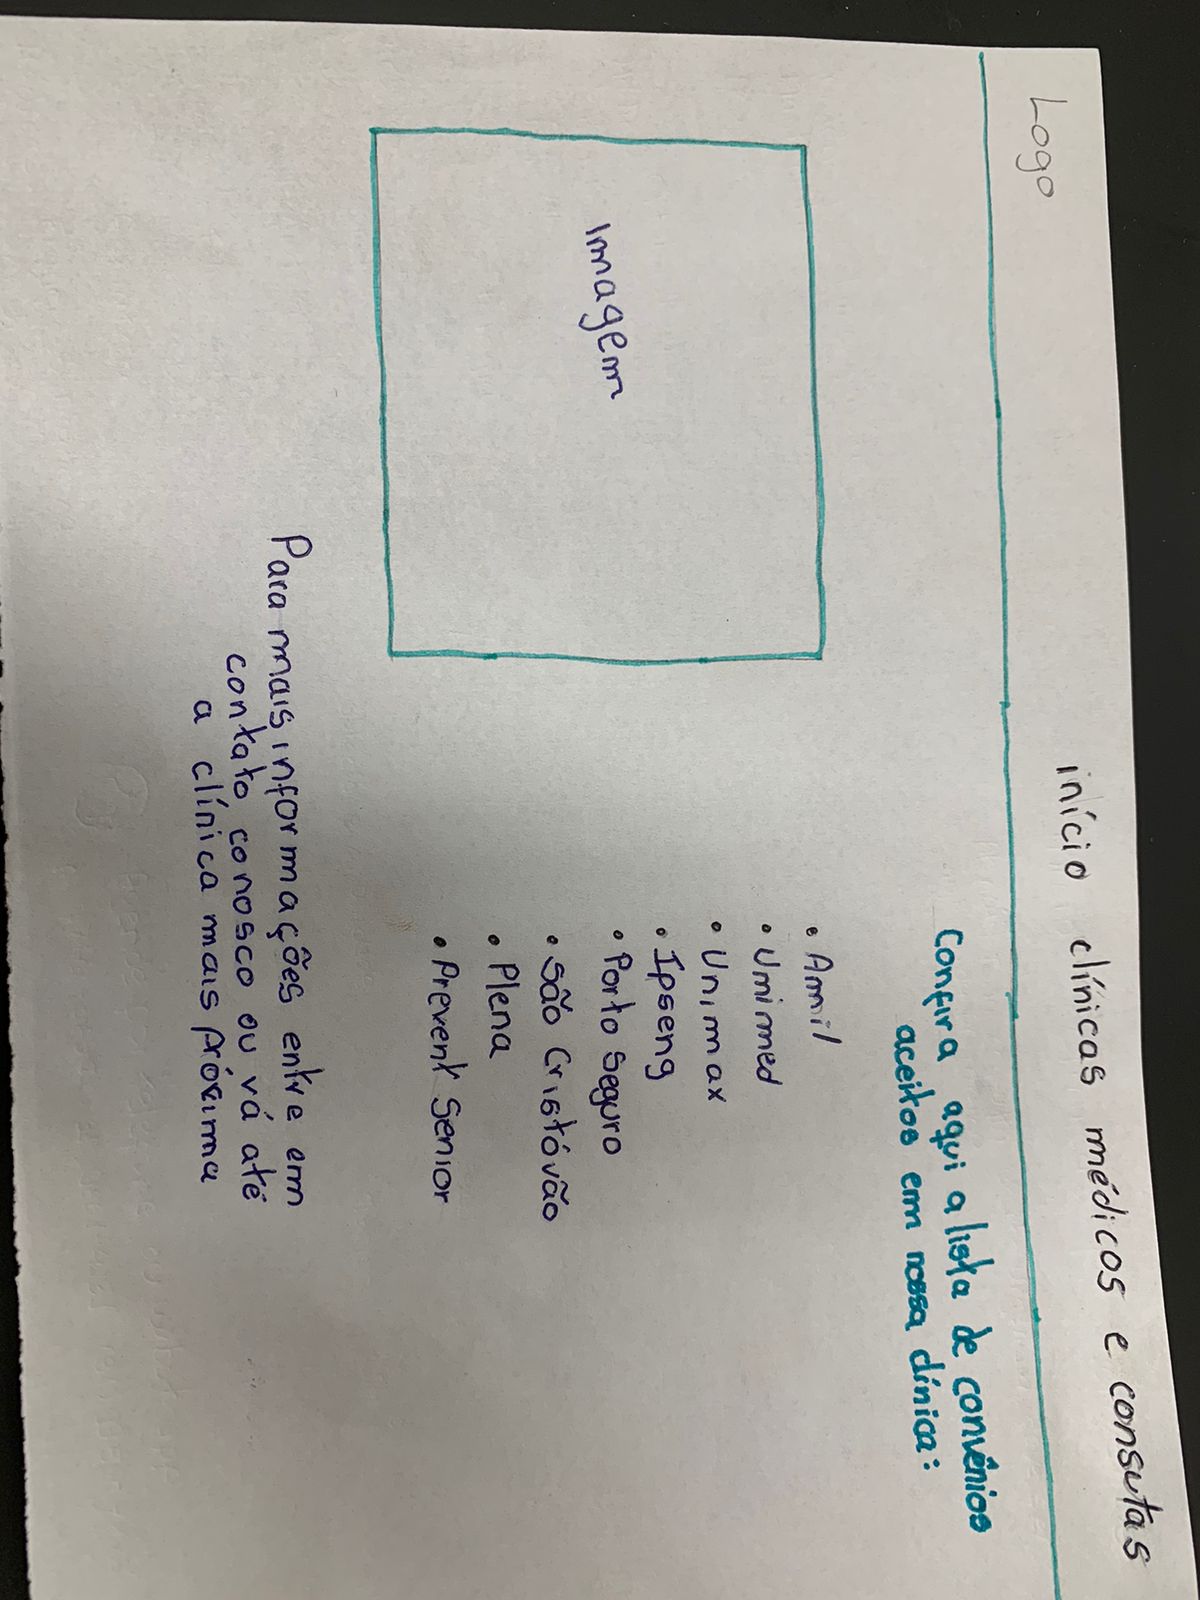 Logo
início clínicas médicos e consutas
Confira aqui a lista de convênios
aceitos em nossa clínica:
• Amil
• Unimed
• Unimax
• Ipseng
• Porto Seguro
• São Cristóvão
• Plena
• Prevent Senior
Imagem
Para mais informações entre em
contato conosco ou vá até
a clínica mais próxima